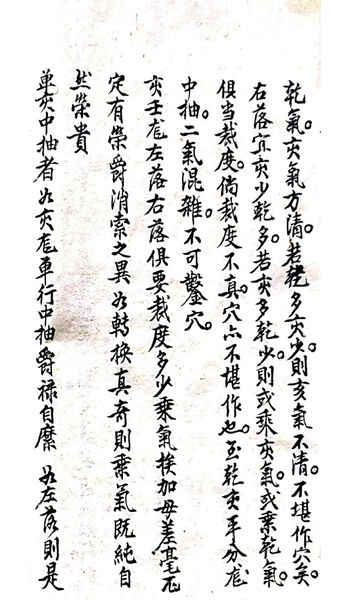 乾氣。亥氣方清。若乾多亥少。則亥氣不清。不堪作穴矣。
右落宜亥少乾多。若亥多乾少。則或乘亥氣。或乘乾氣。
俱當裁度。倘裁度不真。穴亦不堪作也。至乾亥平分
中抽。二氣混雜。不可鑿穴。
亥壬 左落右落俱要裁度多少乘氣挨加毋差毫厘
定有榮爵消索之異 如轉換真奇則乘氣既純自
然榮貴
單亥中抽者 如亥 單行中抽爵祿自縻 如左落則是